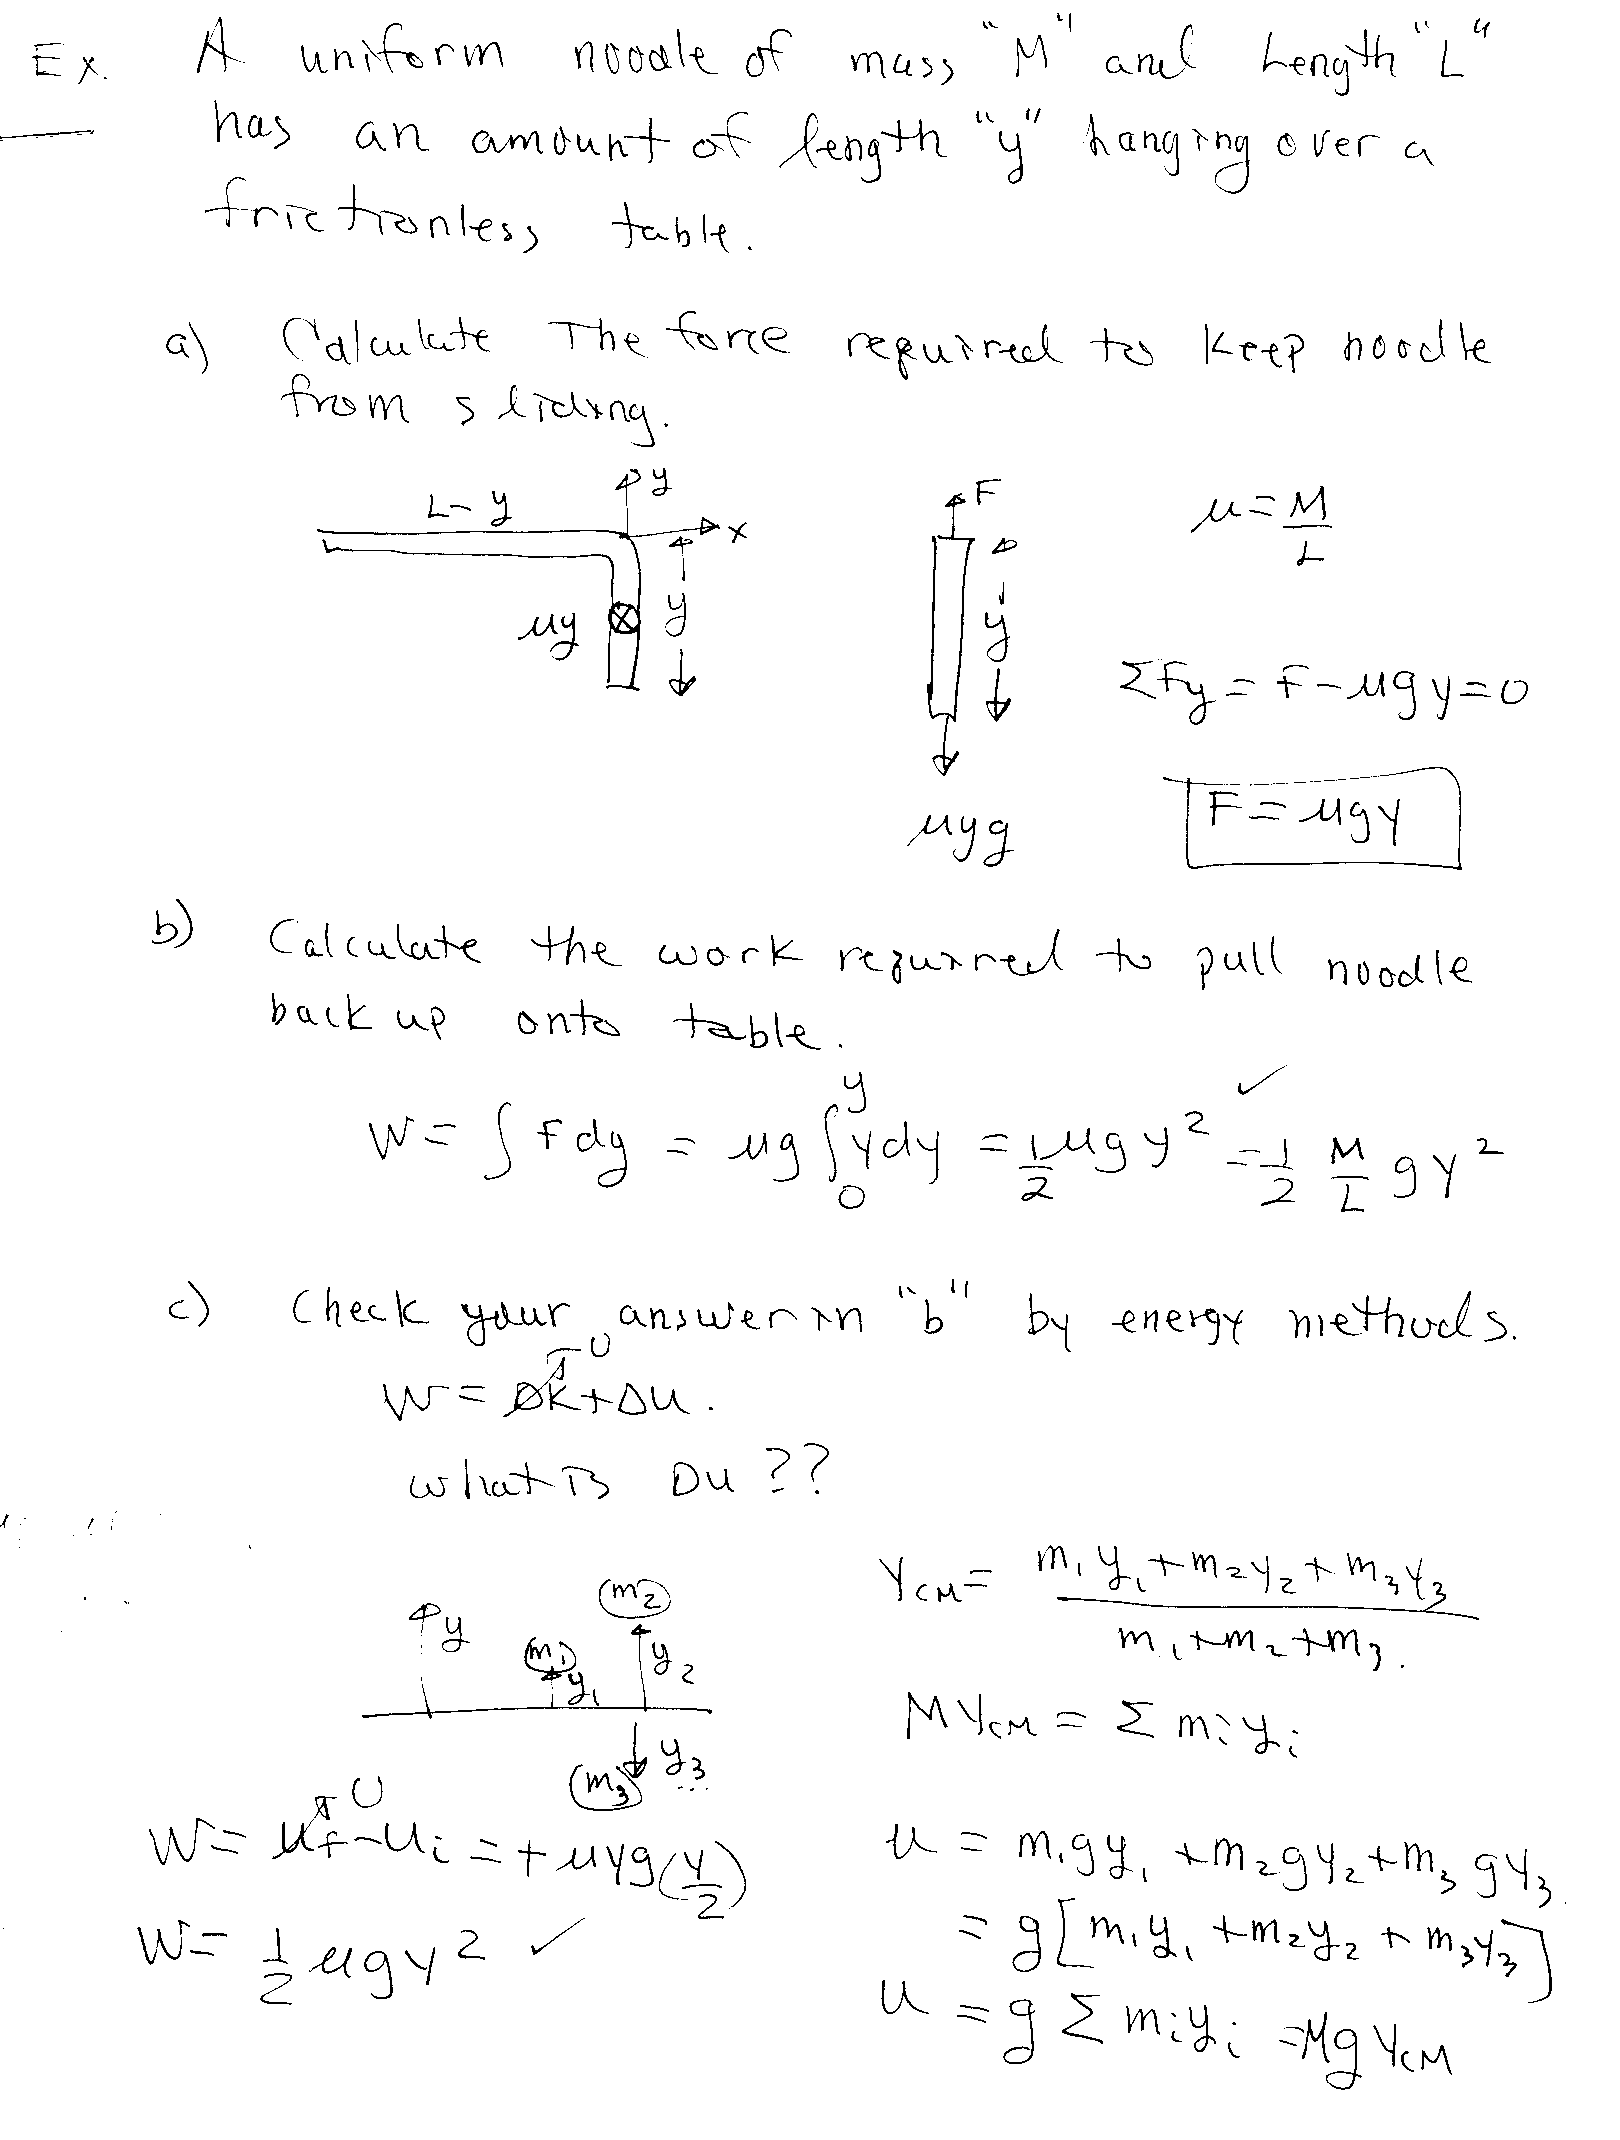 Ex. A uniform noodle of mass "M" and Length "L"
has an amount of length "y" hanging over a
frictionless table.
a) Calculate The force required to keep noodle
from sliding.
L-y
y
x
μy
y
F
y
μyg
μ = M/L
ΣFy = F - μgy = 0
F = μgy
b) Calculate the work required to pull noodle
back up onto table.
W = ∫ F dy = μg ∫₀^y y dy = 1/2 μgy² ✓ = 1/2 M/L gy²
c) Check your answer in "b" by energy methods.
W = ΔK→0 + ΔU.
what is ΔU ??
y
m₁
y₁
m₂
y₂
y₃
m₃
W = U_f→0 - U_i = + μyg(y/2)
W = 1/2 μgy² ✓
Y_CM = (m₁y₁ + m₂y₂ + m₃y₃)/(m₁ + m₂ + m₃).
M Y_CM = Σ mᵢyᵢ
U = m₁gy₁ + m₂gy₂ + m₃gy₃
= g[m₁y₁ + m₂y₂ + m₃y₃]
U = g Σ mᵢyᵢ = Mg Y_CM